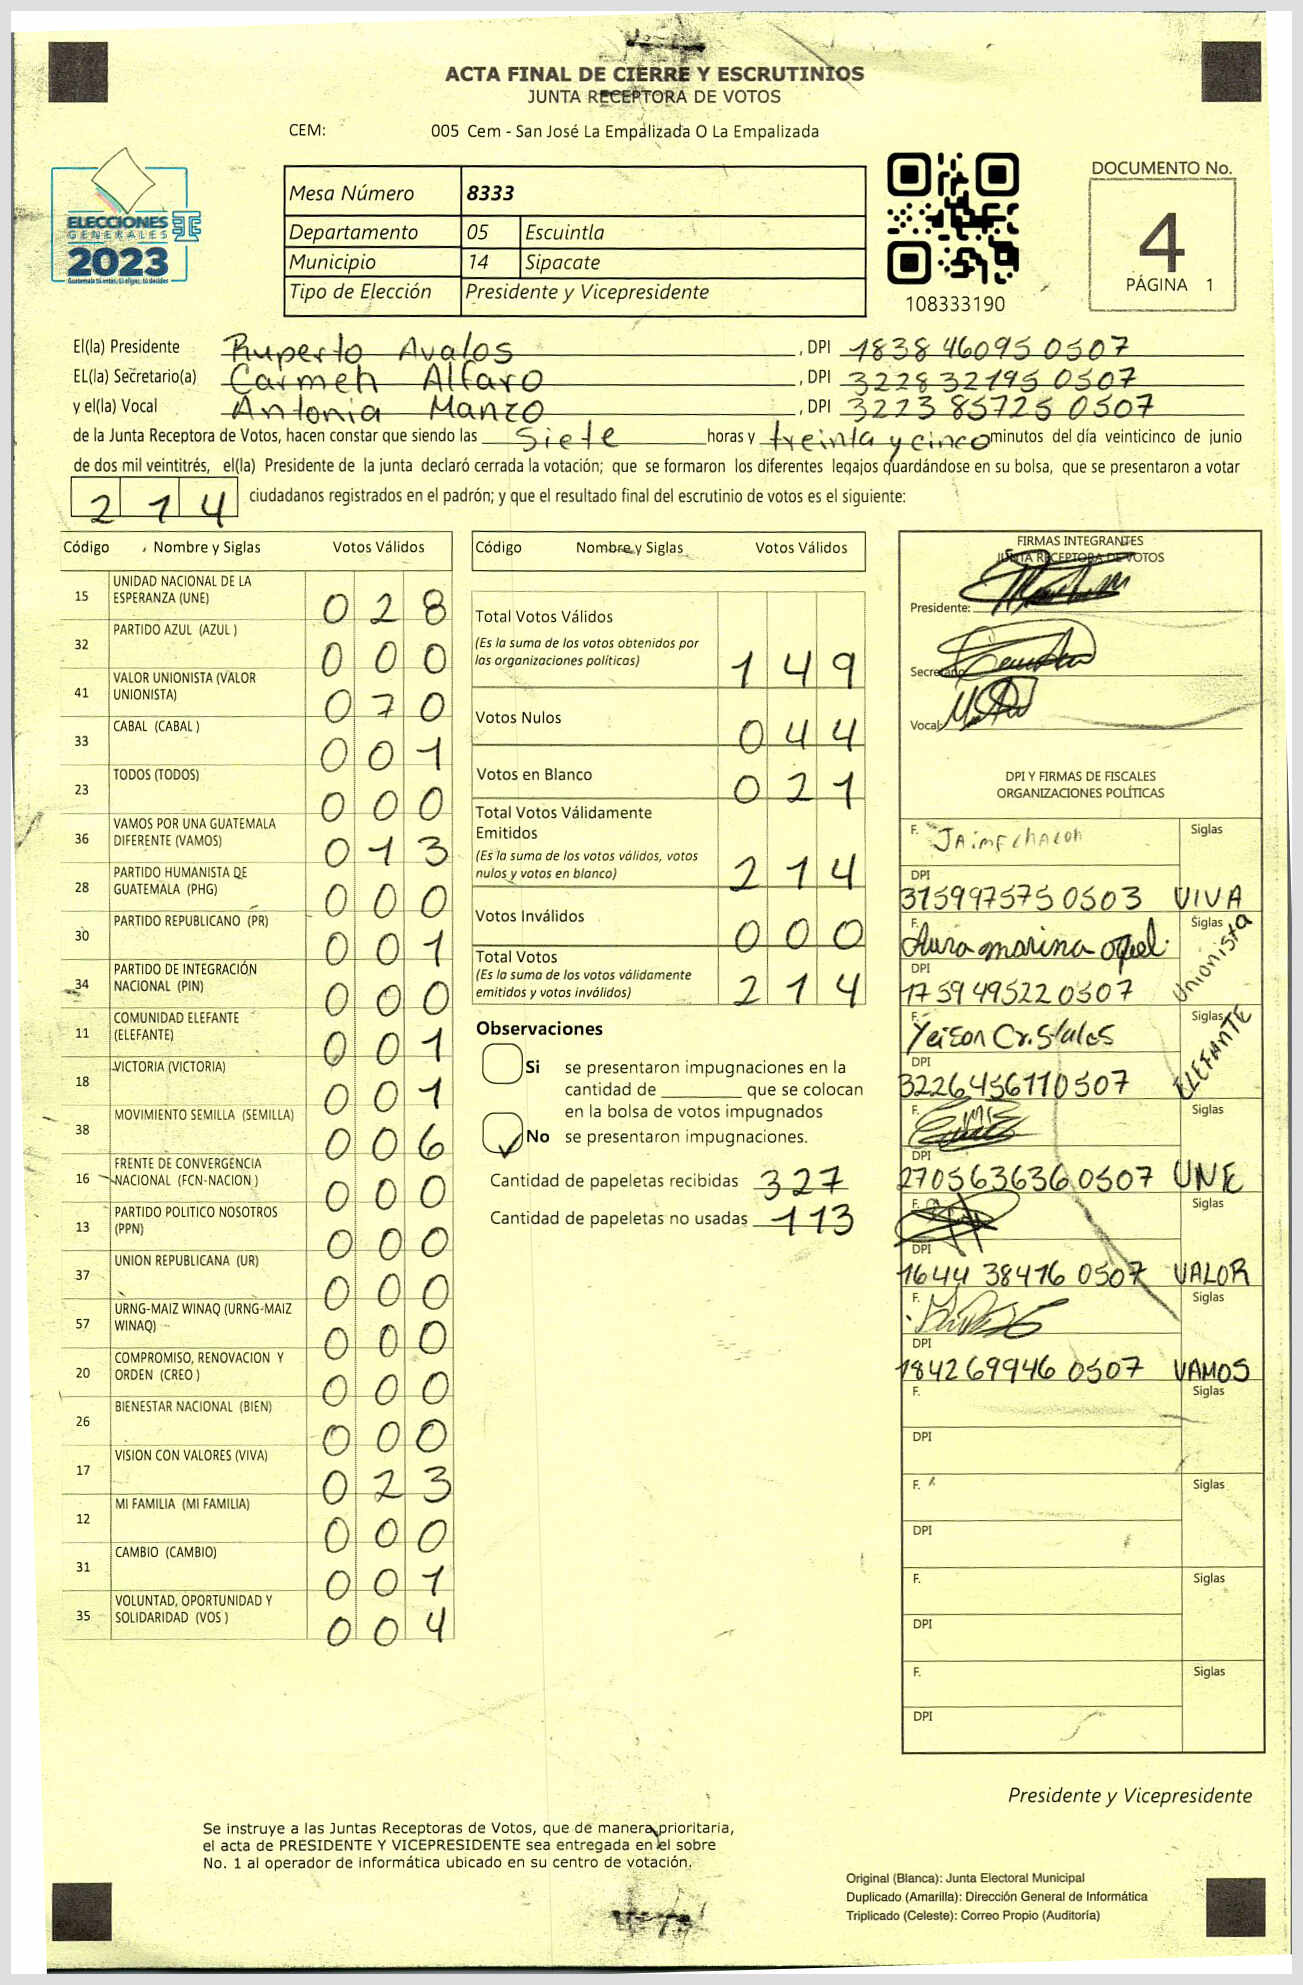 ACTA FINAL DE CIERRE Y ESCRUTINIOS
JUNTA RECEPTORA DE VOTOS
CEM: 005 Cem - San José La Empalizada O La Empalizada
ELECCIONES
GENERALES
2023
Guatemala tú votas, tú eliges, tú decides
Mesa Número 8333
Departamento 05 Escuintla
Municipio 14 Sipacate
Tipo de Elección Presidente y Vicepresidente
108333190
DOCUMENTO No.
4
PÁGINA 1
El(la) Presidente Ruperto Avalos , DPI 1838 46095 0507
EL(la) Secretario(a) Carmen Alfaro , DPI 3228 32195 0507
y el(la) Vocal Antonia Manzo , DPI 3223 85725 0507
de la Junta Receptora de Votos, hacen constar que siendo las Siete horas y treinta y cinco minutos del día veinticinco de junio
de dos mil veintitrés, el(la) Presidente de la junta declaró cerrada la votación; que se formaron los diferentes legajos guardándose en su bolsa, que se presentaron a votar
2 1 4 ciudadanos registrados en el padrón; y que el resultado final del escrutinio de votos es el siguiente:
Código Nombre y Siglas Votos Válidos
15 UNIDAD NACIONAL DE LA ESPERANZA (UNE) 0 2 8
32 PARTIDO AZUL (AZUL ) 0 0 0
41 VALOR UNIONISTA (VALOR UNIONISTA) 0 7 0
33 CABAL (CABAL ) 0 0 1
23 TODOS (TODOS) 0 0 0
36 VAMOS POR UNA GUATEMALA DIFERENTE (VAMOS) 0 1 3
28 PARTIDO HUMANISTA DE GUATEMALA (PHG) 0 0 0
30 PARTIDO REPUBLICANO (PR) 0 0 1
34 PARTIDO DE INTEGRACIÓN NACIONAL (PIN) 0 0 0
11 COMUNIDAD ELEFANTE (ELEFANTE) 0 0 1
18 VICTORIA (VICTORIA) 0 0 1
38 MOVIMIENTO SEMILLA (SEMILLA) 0 0 6
16 FRENTE DE CONVERGENCIA NACIONAL (FCN-NACION ) 0 0 0
13 PARTIDO POLITICO NOSOTROS (PPN) 0 0 0
37 UNION REPUBLICANA (UR) 0 0 0
57 URNG-MAIZ WINAQ (URNG-MAIZ WINAQ) 0 0 0
20 COMPROMISO, RENOVACION Y ORDEN (CREO ) 0 0 0
26 BIENESTAR NACIONAL (BIEN) 0 0 0
17 VISION CON VALORES (VIVA) 0 2 3
12 MI FAMILIA (MI FAMILIA) 0 0 0
31 CAMBIO (CAMBIO) 0 0 1
35 VOLUNTAD, OPORTUNIDAD Y SOLIDARIDAD (VOS ) 0 0 4
Código Nombre y Siglas Votos Válidos
Total Votos Válidos
(Es la suma de los votos obtenidos por
las organizaciones políticas) 1 4 9
Votos Nulos 0 4 4
Votos en Blanco 0 2 1
Total Votos Válidamente
Emitidos
(Es la suma de los votos válidos, votos
nulos y votos en blanco) 2 1 4
Votos Inválidos 0 0 0
Total Votos
(Es la suma de los votos válidamente
emitidos y votos inválidos) 2 1 4
Observaciones
Si se presentaron impugnaciones en la
cantidad de ________ que se colocan
en la bolsa de votos impugnados
No se presentaron impugnaciones.
Cantidad de papeletas recibidas 327
Cantidad de papeletas no usadas 113
FIRMAS INTEGRANTES
JUNTA RECEPTORA DE VOTOS
Presidente:
Secretario
Vocal:
DPI Y FIRMAS DE FISCALES
ORGANIZACIONES POLÍTICAS
F. Jaime chacon Siglas
DPI
315997575 0503 VIVA
F. Aura marina Siglas
DPI Unionista
1759 49522 0507
F. Yeison Cristales Siglas
DPI ELEFANTE
3226456110507
F. Siglas
DPI
270563636 0507 UNE
F. Siglas
DPI
1644 38416 0507 VALOR
F. Siglas
DPI
184269946 0507 VAMOS
F. Siglas
DPI
F. Siglas
DPI
F. Siglas
DPI
F. Siglas
DPI
Presidente y Vicepresidente
Se instruye a las Juntas Receptoras de Votos, que de manera prioritaria,
el acta de PRESIDENTE Y VICEPRESIDENTE sea entregada en el sobre
No. 1 al operador de informática ubicado en su centro de votación.
Original (Blanca): Junta Electoral Municipal
Duplicado (Amarilla): Dirección General de Informática
Triplicado (Celeste): Correo Propio (Auditoría)